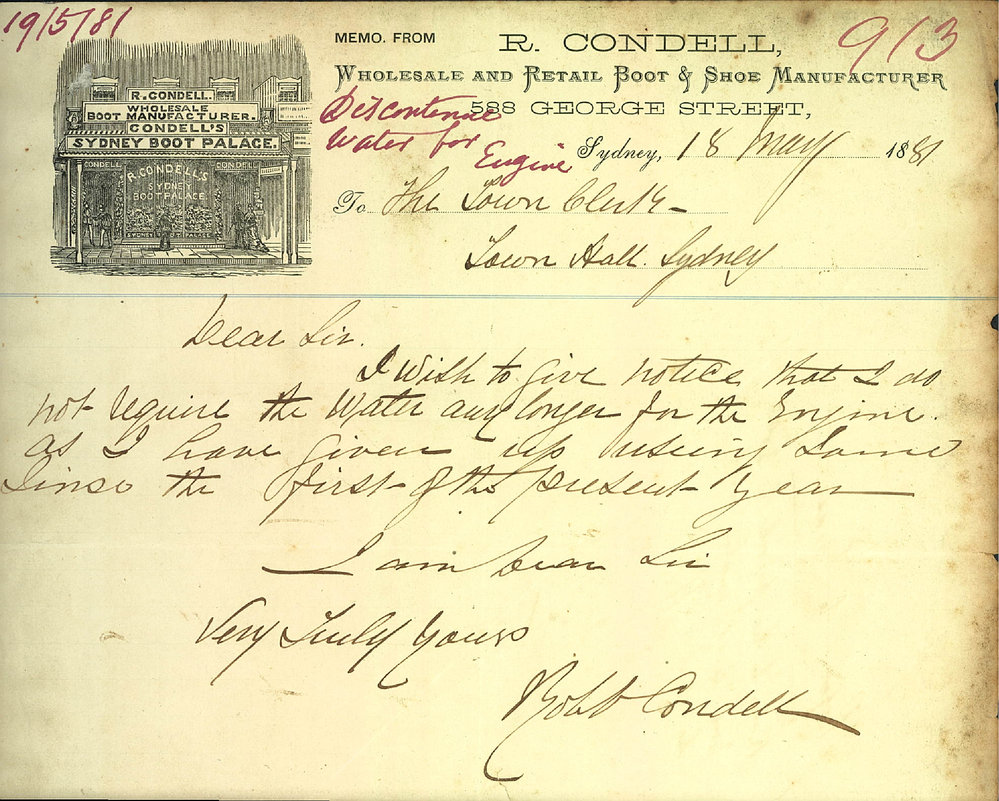 19/5/81
913
MEMO. FROM R. CONDELL,
WHOLESALE AND RETAIL BOOT & SHOE MANUFACTURER
588 GEORGE STREET,
Discontinue
Water for
Engine
Sydney, 18 May 1881
To The Town Clerk -
Town Hall. Sydney
R. CONDELL.
WHOLESALE
BOOT MANUFACTURER.
CONDELL'S
SYDNEY BOOT PALACE.
CONDELL CONDELL
R. CONDELL'S
SYDNEY
BOOT PALACE
Dear Sir.
I Wish to give notice that I do
not require the Water any longer for the Engine.
as I have given up using Same
Since the first of the present Year
I am Dear Sir
Very Truly Yours
Robt Condell